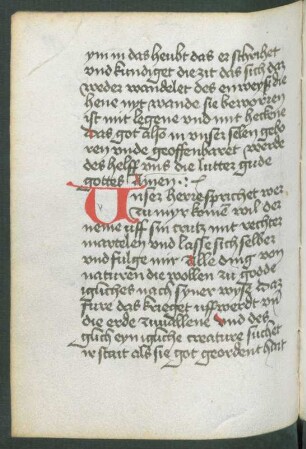 ym in das heubt das er schrihet
vnd kundiget die zit das sich daz
weder wandelet des en weysz die
hene nyt wande sie beworren
ist mit legene vnd mit heckene
das got also in vnser selen gebo
ren vnde geoffenbaret werde
des helff vns die lutter gude
gottes Amen
Unser herre sprichet wer
zu myr komen wil der
neme uff sin crutz mit rechter
martelen vnd lasse sich selber
vnd fulge mir Alle ding von
naturen die wollen zu gode
igliches nach syner wise daz
fure das krieget uff wert vn
die erde zu tallene vnd des
glich eyn igliche creature suchet
ir stait als sie got geordent hait